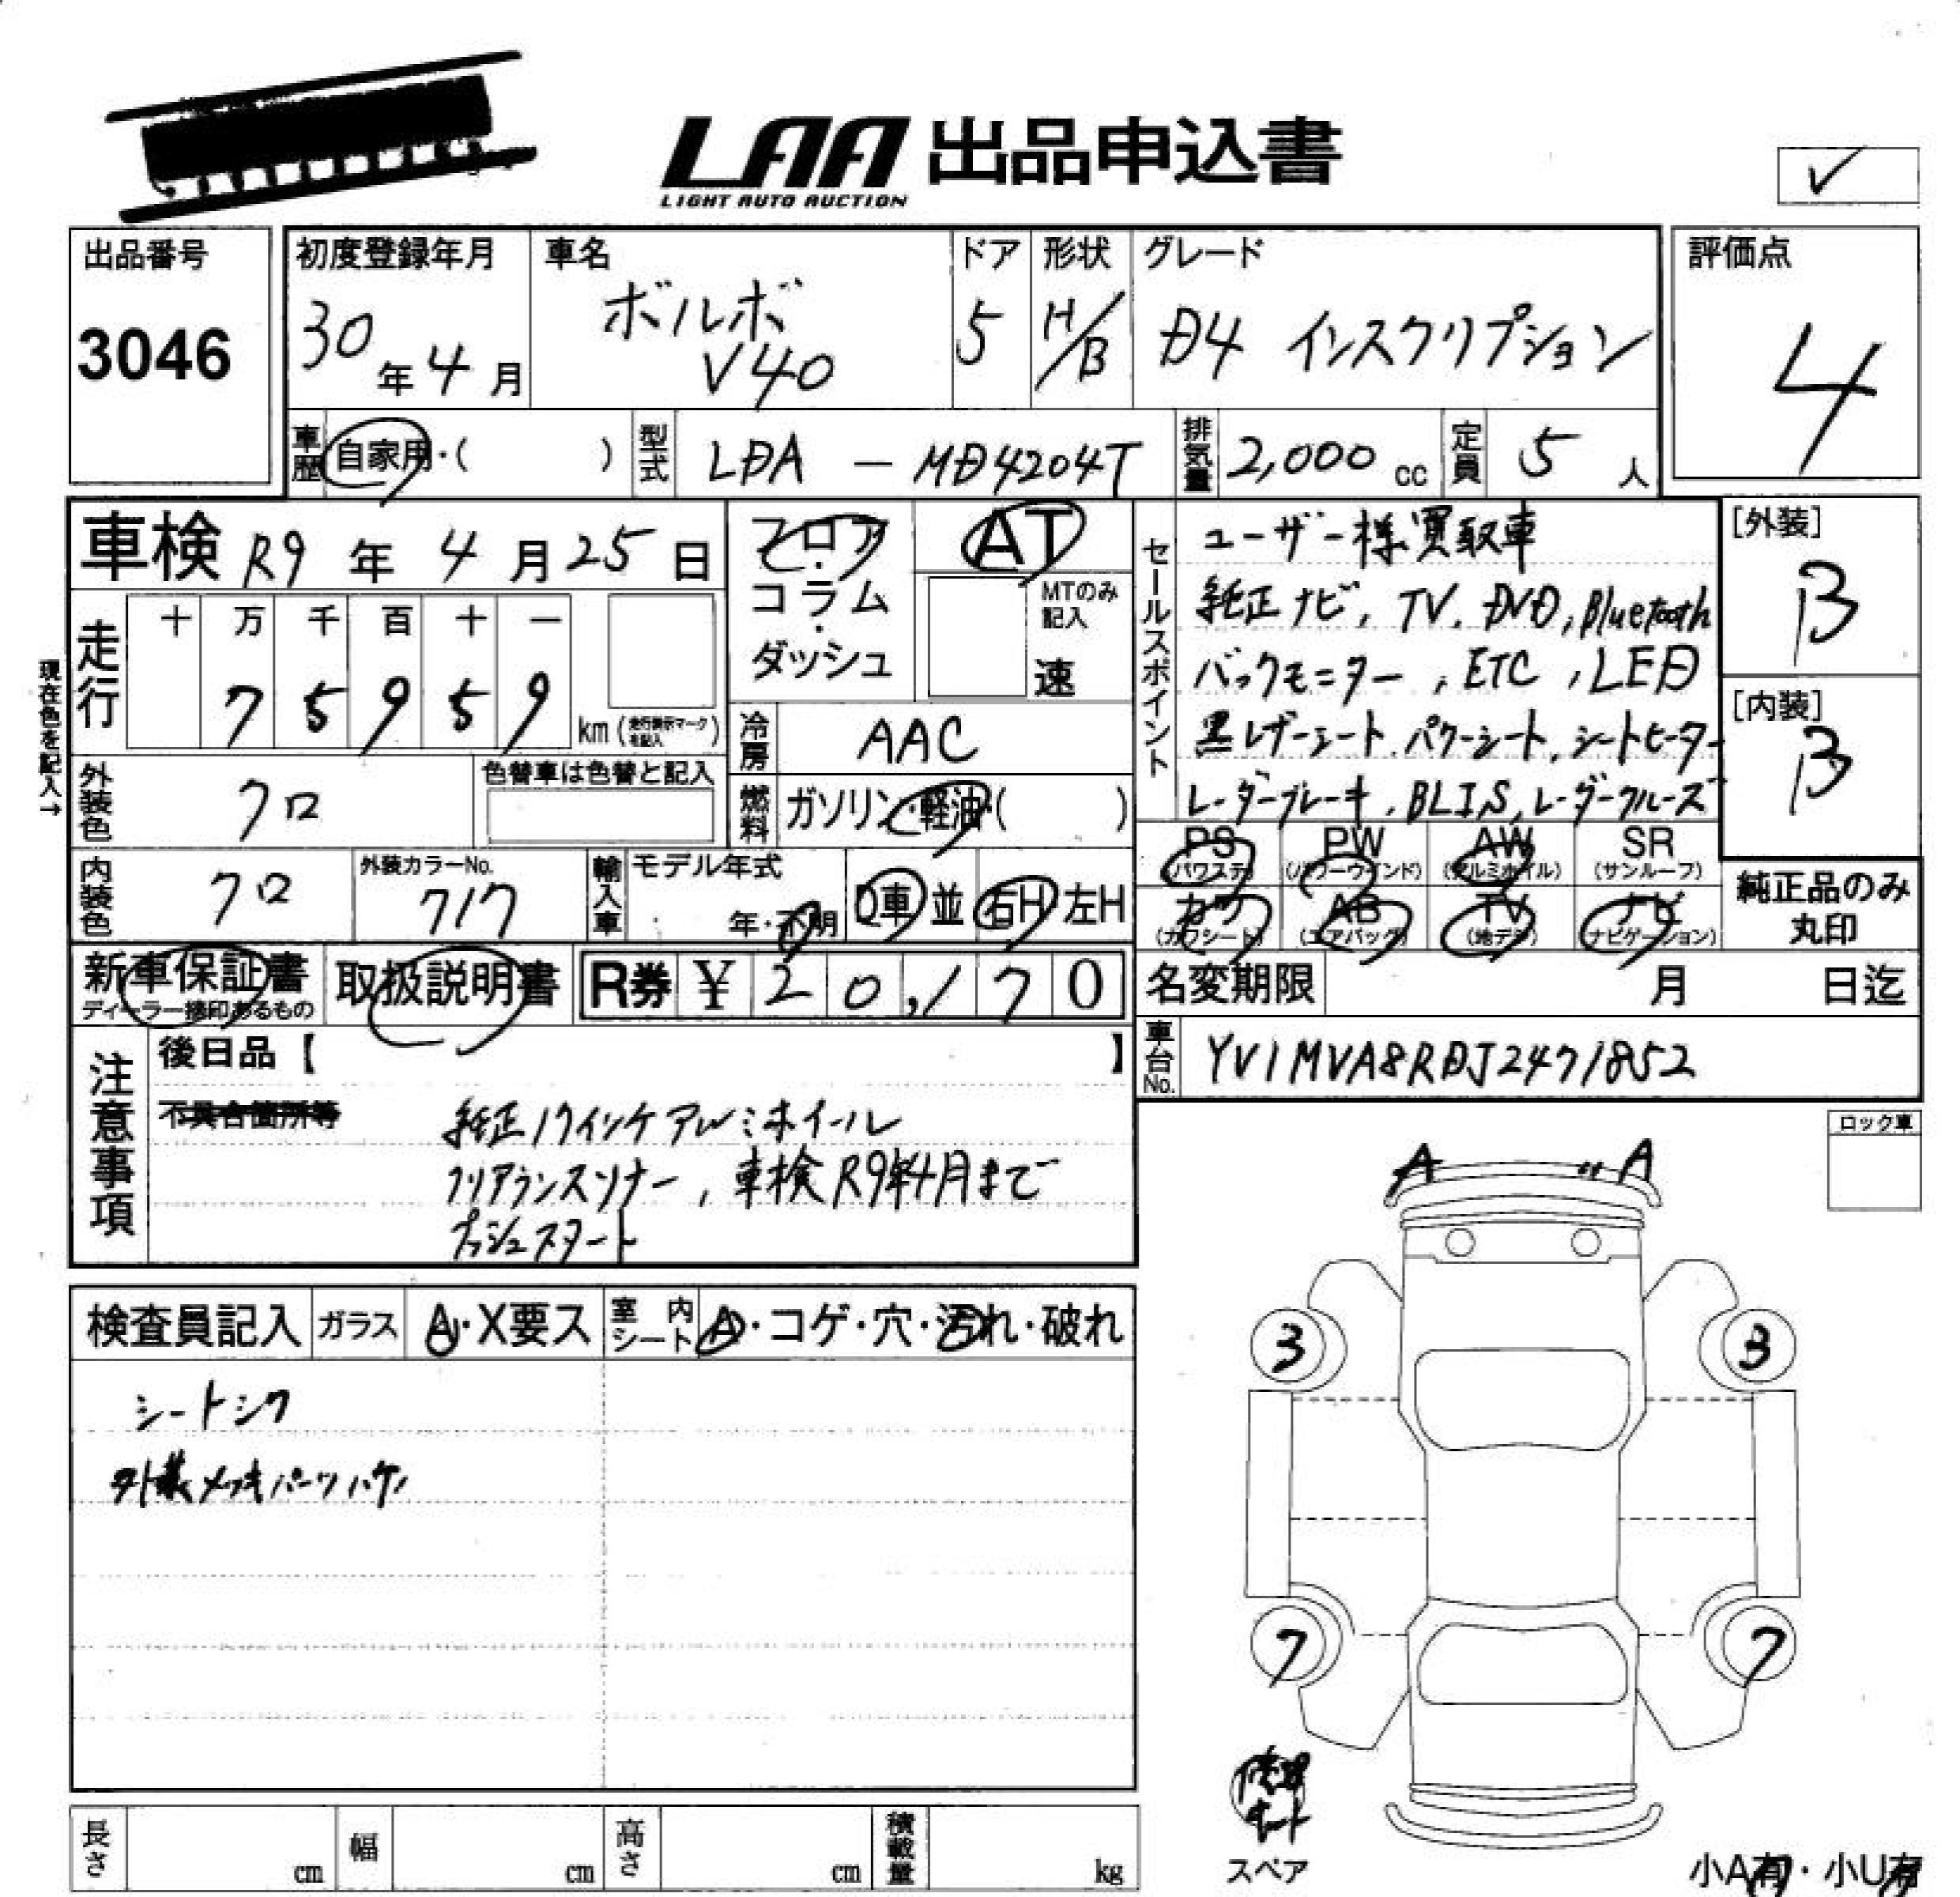 LAA 出品申込書
LIGHT AUTO AUCTION
✓
出品番号
3046
初度登録年月
30年4月
車名
ボルボ
V40
ドア
5
形状
H/B
グレード
D4 インスクリプション
評価点
4
車歴
自家用・( )
型式
LDA - MD4204T
排気量
2,000 cc
定員
5 人
車検 R9年4月25日
フロア・コラム・ダッシュ
AT
MTのみ記入
速
走行
十 万 千 百 十 一
7 5 9 5 9
km(走行表示マークを記入)
現在色を記入→
冷房
AAC
外装色
クロ
色替車は色替と記入
燃料
ガソリン・軽油・( )
内装色
クロ
外装カラーNo.
717
輸入車
モデル年式
年・不明
D車 並
右H 左H
新車保証書
ディーラー捺印あるもの
取扱説明書
R券 ¥ 20,170
セールスポイント
ユーザー様買取車
純正ナビ, TV, DVD, Bluetooth
バックモニター, ETC, LED
黒レザーシート, パワーシート, シートヒーター
レーダーブレーキ, BLIS, レーダークルーズ
[外装]
B
[内装]
B
PS PW AW SR
(パワステ) (パワーウインド) (アルミホイル) (サンルーフ)
カワ AB TV ナビ
(カワシート) (エアバッグ) (地デジ) (ナビゲーション)
純正品のみ
丸印
名変期限 月 日迄
車台No.
YV1MVA8RDJ2471852
注意事項
後日品【 】
不具合箇所等
純正17インチアルミホイール
クリアランスソナー, 車検R9年4月まで
プッシュスタート
ロック車
A A
検査員記入
ガラス
A・X要ス
室内シート
A・コゲ・穴・汚れ・破れ
シートシワ
外装メッキパーツハゲ
3 3
7 7
キット
スペア
小A有・小U有
長さ cm
幅 cm
高さ cm
積載量 kg